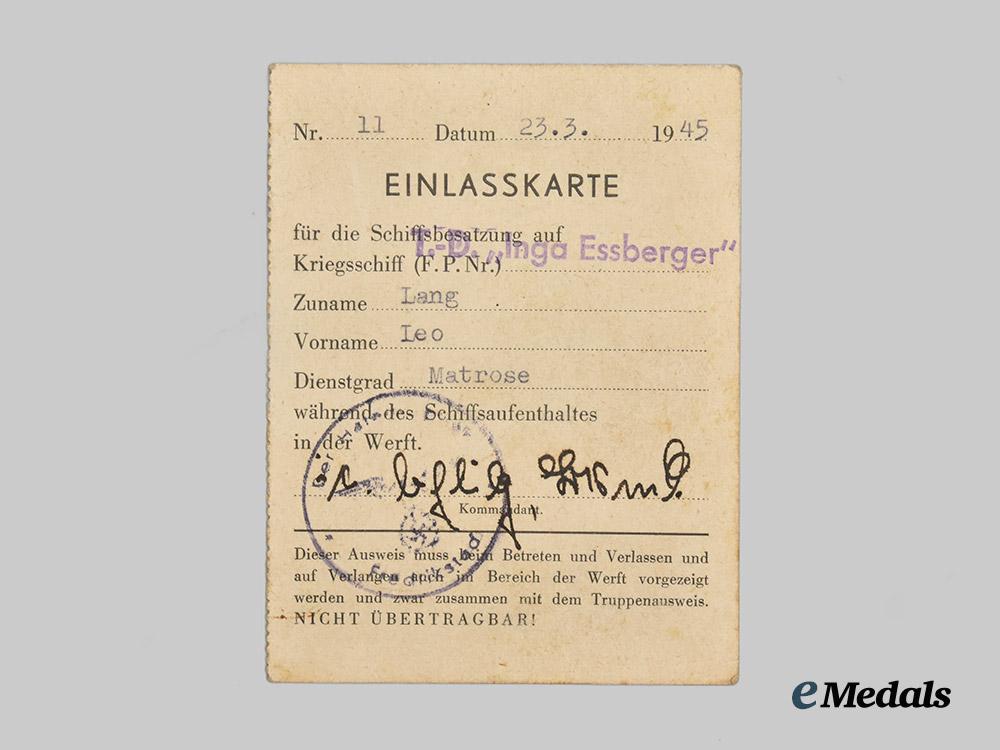 Nr. 11 Datum 23.3. 1945
EINLASSKARTE
für die Schiffsbesatzung auf
T.-D. „Inga Essberger"
Kriegsschiff (F.P.Nr.)
Zuname Lang
Vorname Leo
Dienstgrad Matrose
während des Schiffsaufenthaltes
in der Werft.
Kommandant.
Der
Fredrikstad
Dieser Ausweis muss beim Betreten und Verlassen und
auf Verlangen auch im Bereich der Werft vorgezeigt
werden und zwar zusammen mit dem Truppenausweis.
NICHT ÜBERTRAGBAR!
eMedals